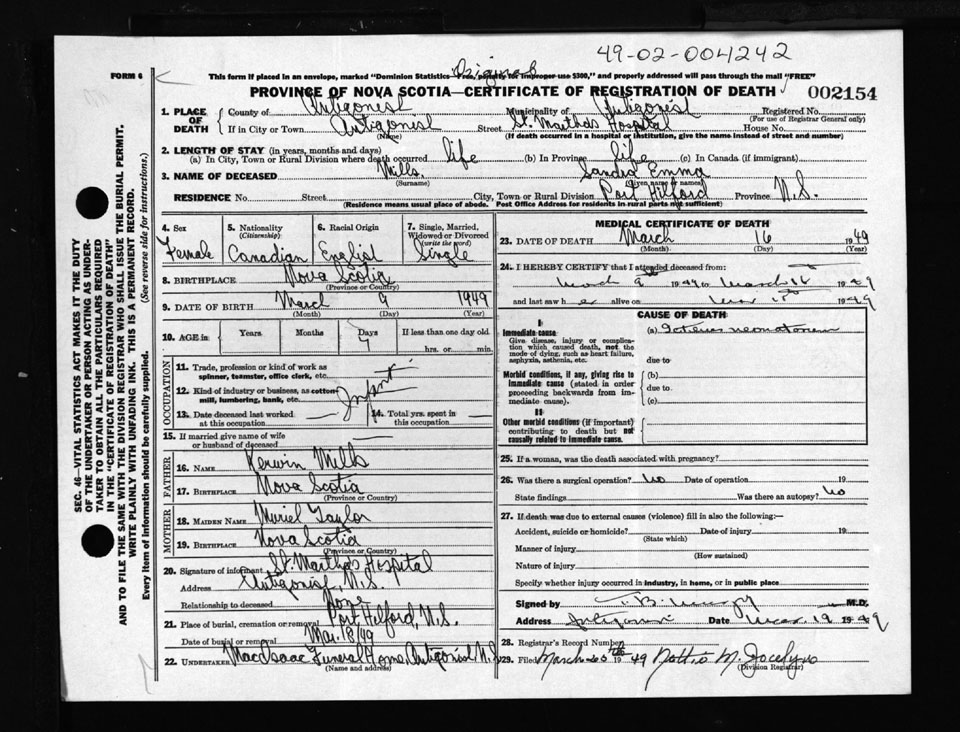 49-02-004242
Original
FORM 6
This form if placed in an envelope, marked "Dominion Statistics Free, penalty for improper use $300," and properly addressed will pass through the mail "FREE"
PROVINCE OF NOVA SCOTIA—CERTIFICATE OF REGISTRATION OF DEATH
002154
1. PLACE OF DEATH County of Antigonish Municipality of Antigonish Registered No.
(For use of Registrar General only)
If in City or Town Antigonish Street St. Martha's Hospital House No.
(Name) (If death occurred in a hospital or institution, give the name instead of street and number)
2. LENGTH OF STAY (in years, months and days)
(a) In City, Town or Rural Division where death occurred life (b) In Province life (c) In Canada (if immigrant)
3. NAME OF DECEASED Mills. Sandra Emma
(Surname) (Given name or names)
RESIDENCE No. Street City, Town or Rural Division Port Hilford Province N.S.
(Residence means usual place of abode. Post Office Address for residents in rural parts not sufficient)
SEC. 46—VITAL STATISTICS ACT MAKES IT THE DUTY
OF THE UNDERTAKER OR PERSON ACTING AS UNDER-
TAKER TO OBTAIN ALL THE PARTICULARS REQUIRED
IN THE "CERTIFICATE OF REGISTRATION OF DEATH"
AND TO FILE THE SAME WITH THE DIVISION REGISTRAR WHO SHALL ISSUE THE BURIAL PERMIT.
WRITE PLAINLY WITH UNFADING INK. THIS IS A PERMANENT RECORD.
Every item of information should be carefully supplied. (See reverse side for instructions.)
4. Sex 5. Nationality (Citizenship) 6. Racial Origin 7. Single, Married, Widowed or Divorced (write the word)
Female Canadian English Single
8. BIRTHPLACE Nova Scotia
(Province or Country)
9. DATE OF BIRTH March 9 1949
(Month) (Day) (Year)
10. AGE in Years Months Days If less than one day old
7 hrs. or min.
OCCUPATION
11. Trade, profession or kind of work as
spinner, teamster, office clerk, etc.
12. Kind of industry or business, as cotton
mill, lumbering, bank, etc.
Infant
13. Date deceased last worked
at this occupation
14. Total yrs. spent in
this occupation
15. If married give name of wife
or husband of deceased
FATHER
16. NAME Kerwin Mills
17. BIRTHPLACE Nova Scotia
(Province or Country)
MOTHER
18. MAIDEN NAME Muriel Taylor
19. BIRTHPLACE Nova Scotia
(Province or Country)
20. Signature of informant St. Martha's Hospital
Address Antigonish, N.S.
Relationship to deceased None
21. Place of burial, cremation or removal Port Hilford, N.S.
Date of burial or removal Mar. 18/49
22. UNDERTAKER MacIsaac Funeral Home Antigonish N.S.
(Name and address)
MEDICAL CERTIFICATE OF DEATH
23. DATE OF DEATH March 16 1949
(Month) (Day) (Year)
24. I HEREBY CERTIFY that I attended deceased from:
March 9 1949 to March 16 1949
and last saw her alive on Mar 1949
CAUSE OF DEATH
I
Immediate cause (a) Icterus neonatorum
Give disease, injury or complica-
tion which caused death, not the
mode of dying, such as heart failure,
asphyxia, asthenia, etc.
due to
Morbid conditions, if any, giving rise to (b)
immediate cause (stated in order due to
proceeding backwards from im-
mediate cause). (c)
II
Other morbid conditions (if important)
contributing to death but not
causally related to immediate cause.
25. If a woman, was the death associated with pregnancy?
26. Was there a surgical operation? No Date of operation 19
State findings Was there an autopsy? No
27. If death was due to external causes (violence) fill in also the following:—
Accident, suicide or homicide? Date of injury 19
(State which)
Manner of injury
(How sustained)
Nature of injury
Specify whether injury occurred in industry, in home, or in public place
Signed by M.D.
Address Antigonish Date Mar 19 1949
28. Registrar's Record Number
29. Filed March 1949 M. Jocelyn
(Division Registrar)